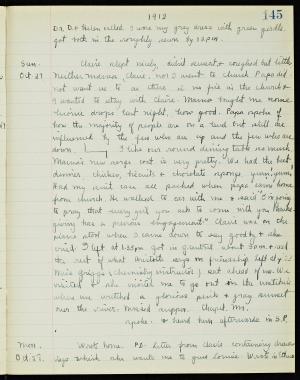 1912
145
Dr. D. & Helen called. I wore my grey dress with green girdle.
got back in the
Sun. Claire slept nicely, didn't sweat & coughed but little.
Oct 27 Neither mama, Claire, nor I went to church. Papa did
not want us to as there is no fire in the church &
I wanted to stay with Claire. Mama taught me some
last night, how good. Papa spoke of
how the majority of people are on a level but still are
influenced by the few who are up and the few who are
down. I like our round dining table so much.
Mama's new serge coat is very pretty. We had the best
dinner chicken, biscuits & chocolate sponge, yum, yum,
Had my suit case all packed when papa came home
from church. He walked to car with me & said "I'm going
to pray that every girl you ask to come with you Thanks-
giving has a previous engagement." Claire was on the
piano stool when I came down to say goodby & she
cried. I left at 1:35 P.M. got in
the rest of what Aristotle says on friendship
Miss Griggs (chemistry instructor) sat ahead of me. We
visited & she invited me to go out on the
where we watched a glorious pink & gray sunset
over the river. Passed supper. Chapel, Mr.
spoke. & heard him afterwards in S.P.
Mon. Wrote home. P.C. Letter from Claire containing
Oct 28. says which she wants me to give Louise. Wrote